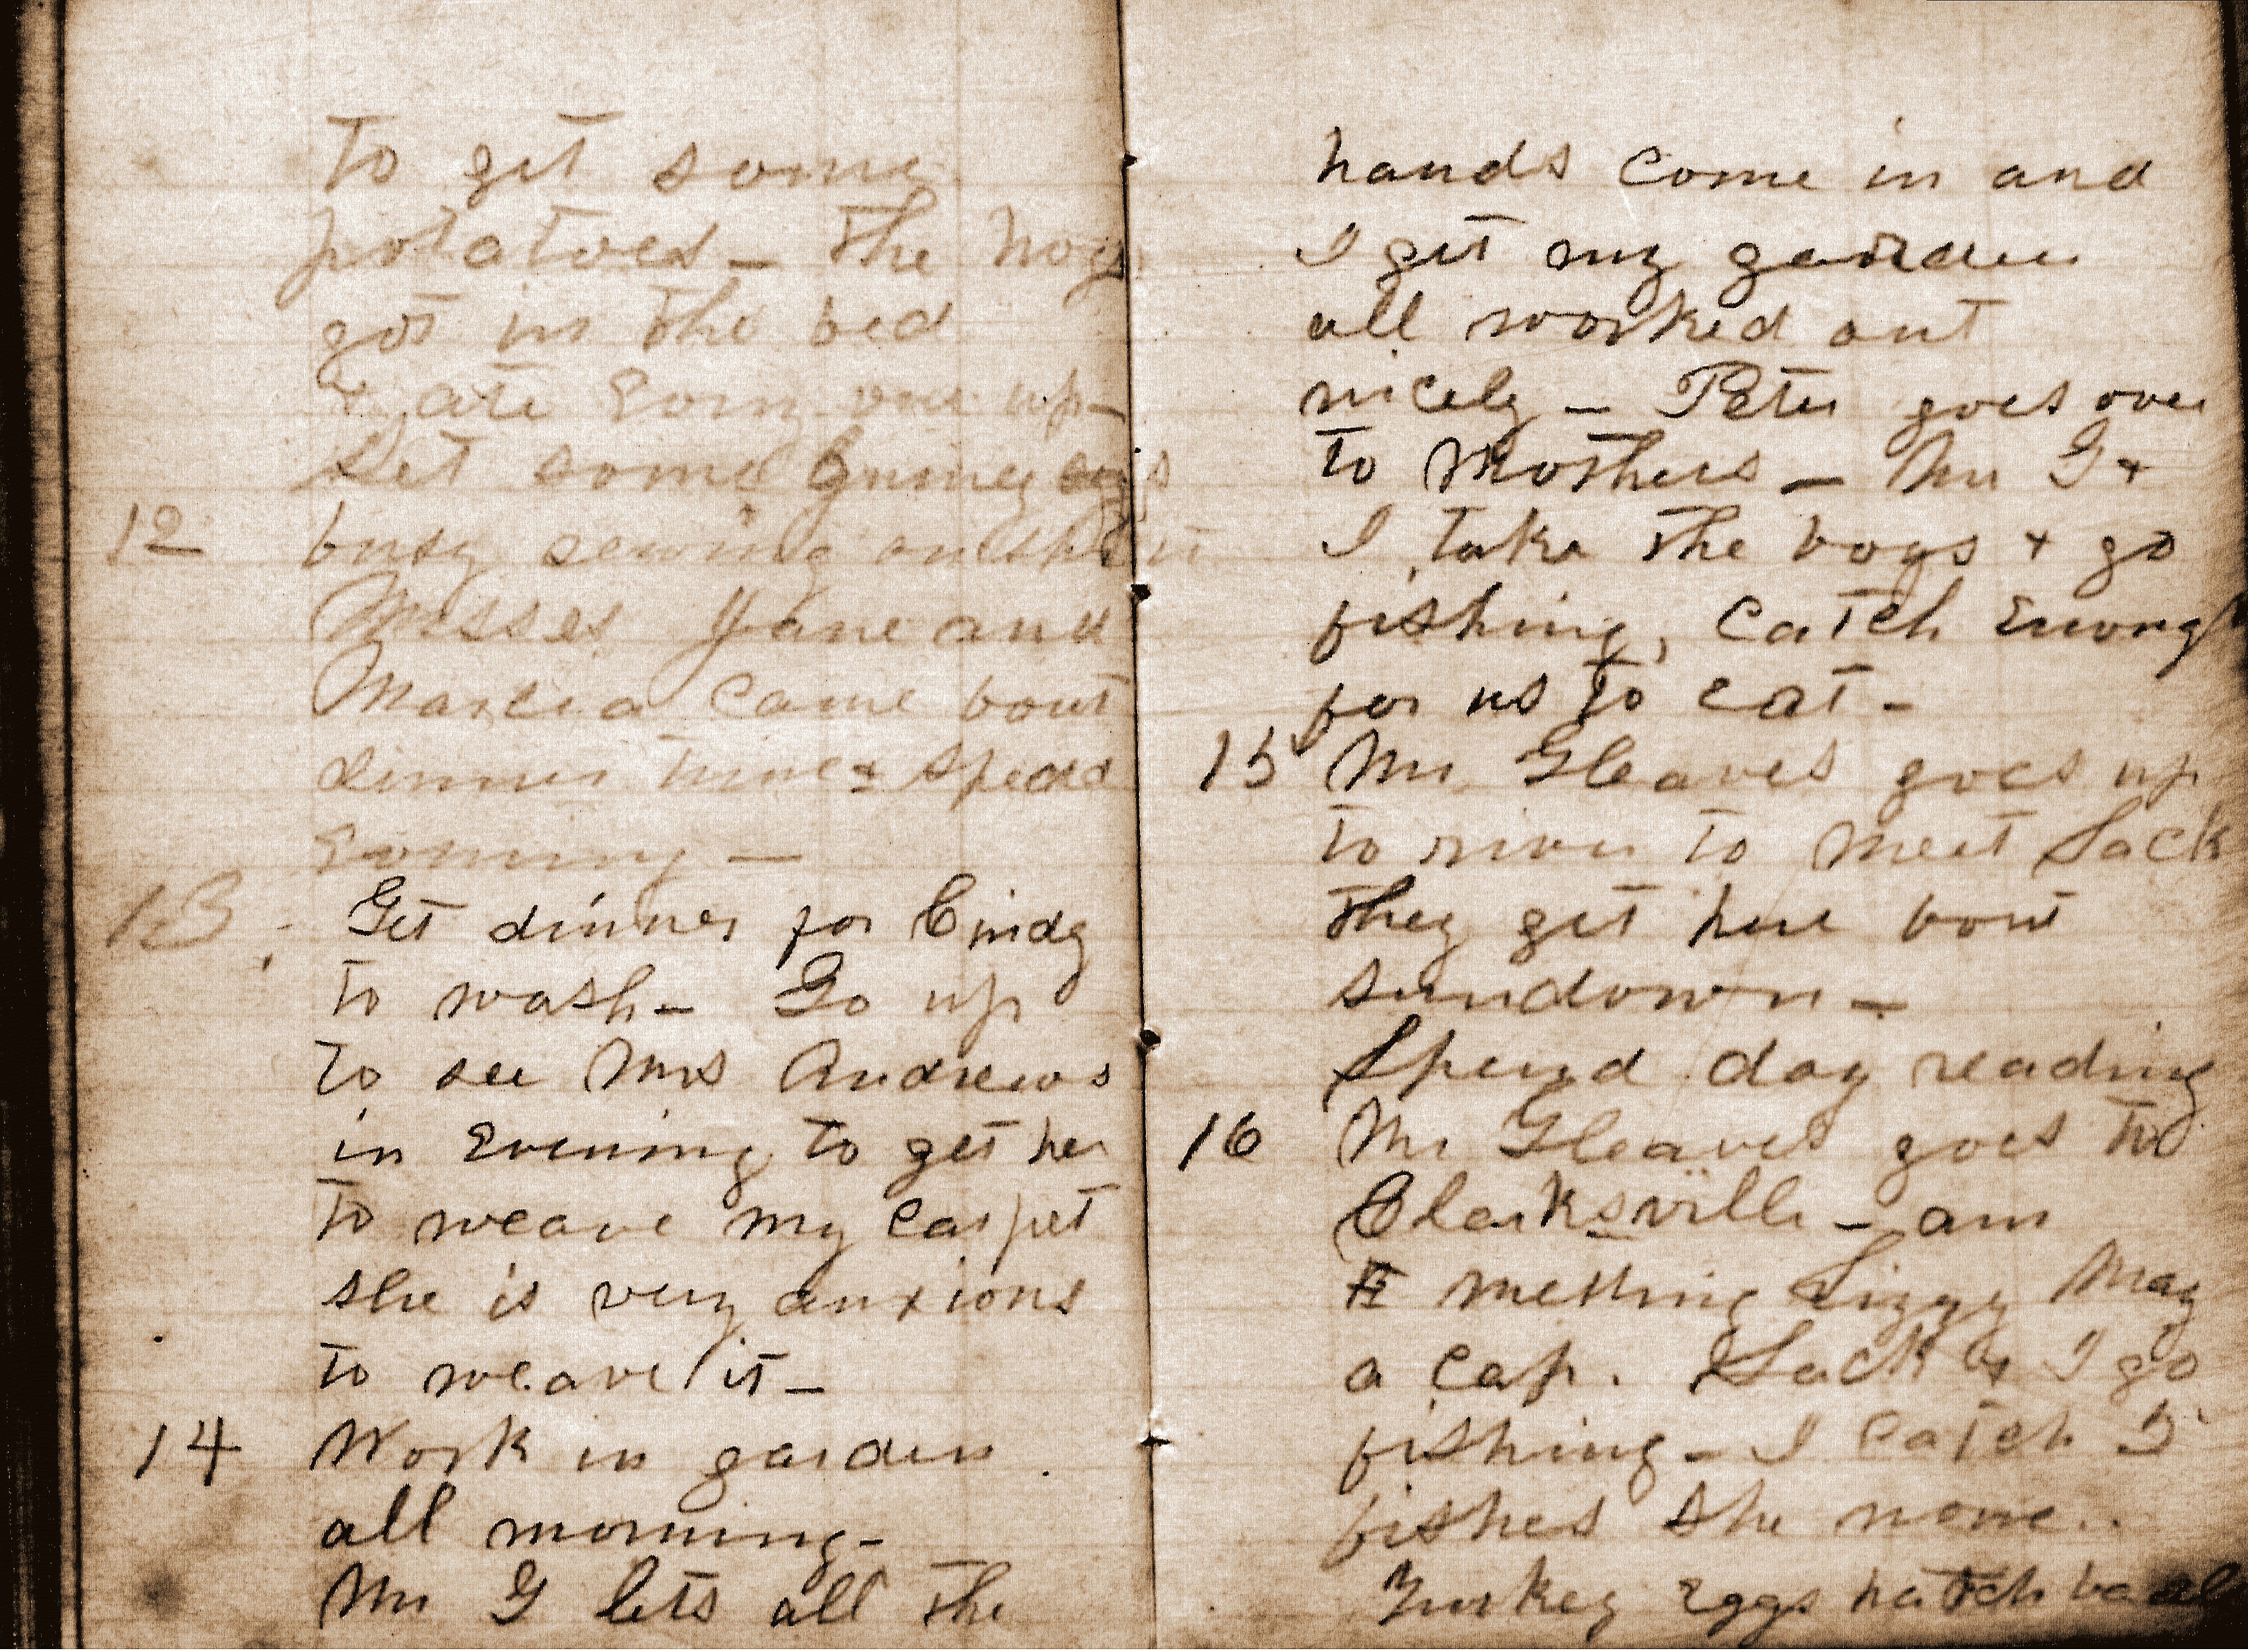 to get some
potatoes - The hogs
got in the bed
& ate every one up-
Set some Guiney eggs
12 busy sewing on shirt
Misses Jane and
Marcia came bout
dinner time & spend
evening -
13 Get dinner for Cindy
to wash - Go up
to see Mrs Andrews
in Evening to get her
to weave my carpet
she is very anxious
to weave it -
14 Work in garden
all morning -
Mr G lets all the
hands come in and
I get my garden
all worked out
nicely - Peter goes over
to Mothers - Mr G &
I take the boys & go
fishing, catch enough
for us to eat -
15 Mr. Gleaves goes up
to river to meet Sack
They get here bout
sundown -
Spend day reading
16 Mr Gleaves goes to
Clarksville - am
Lizzy May
a cap. Sack & I go
fishing - I catch 5
fishes she none..
Turkey Eggs hatch